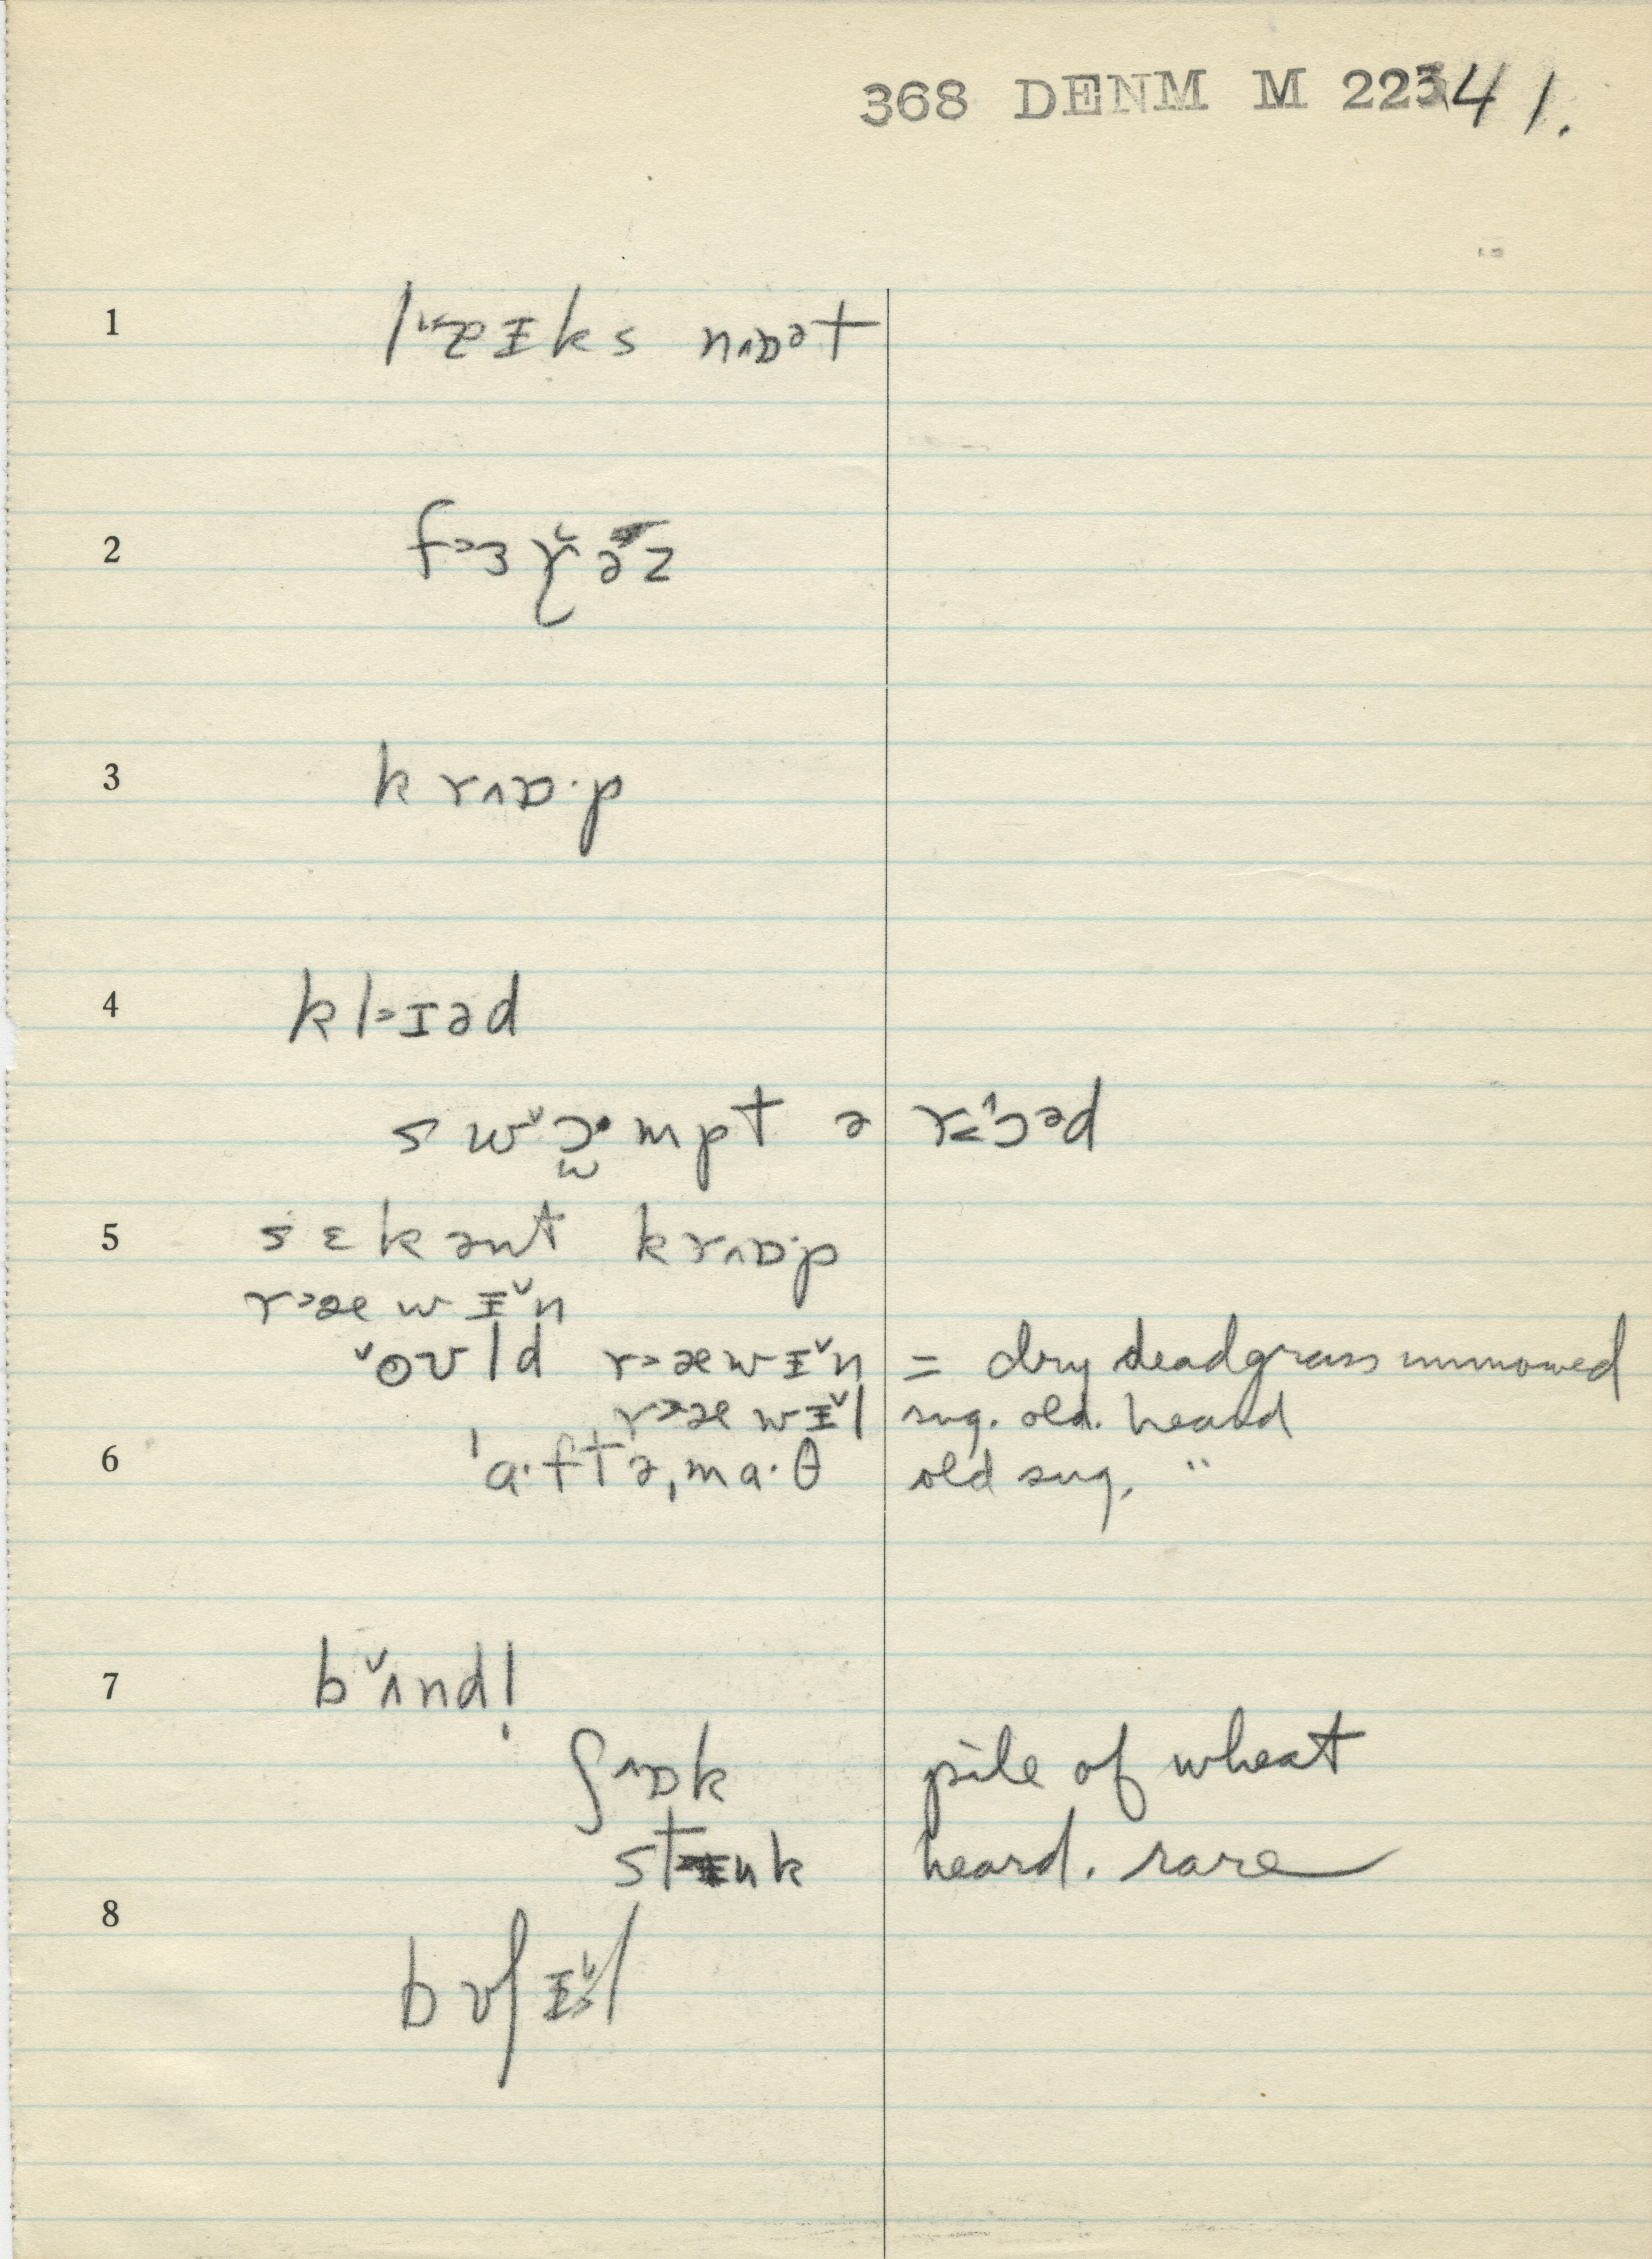 368 DENM M 22341.
1 l˅æɪks nɒət
2 f˃ɜr̆əz
3 krʌɒ·p
4 kl˃ɪəd
sw˅ɔ·mpt ə r˃ɔ^əd
5 sɛkənt krʌɒ·p
r˃æwɪ˅n
˅oʊld r˃æwɪ˅n = dry dead grass unmowed
r˃æwɪ˅l sug. old. heard
6 ˈa·ftəˌma·θ old sug. "
7 b˅ʌndl̩
ʃʌɒk pile of wheat
st˃ɪnk heard. rare
8 bʊʃɪ˅l